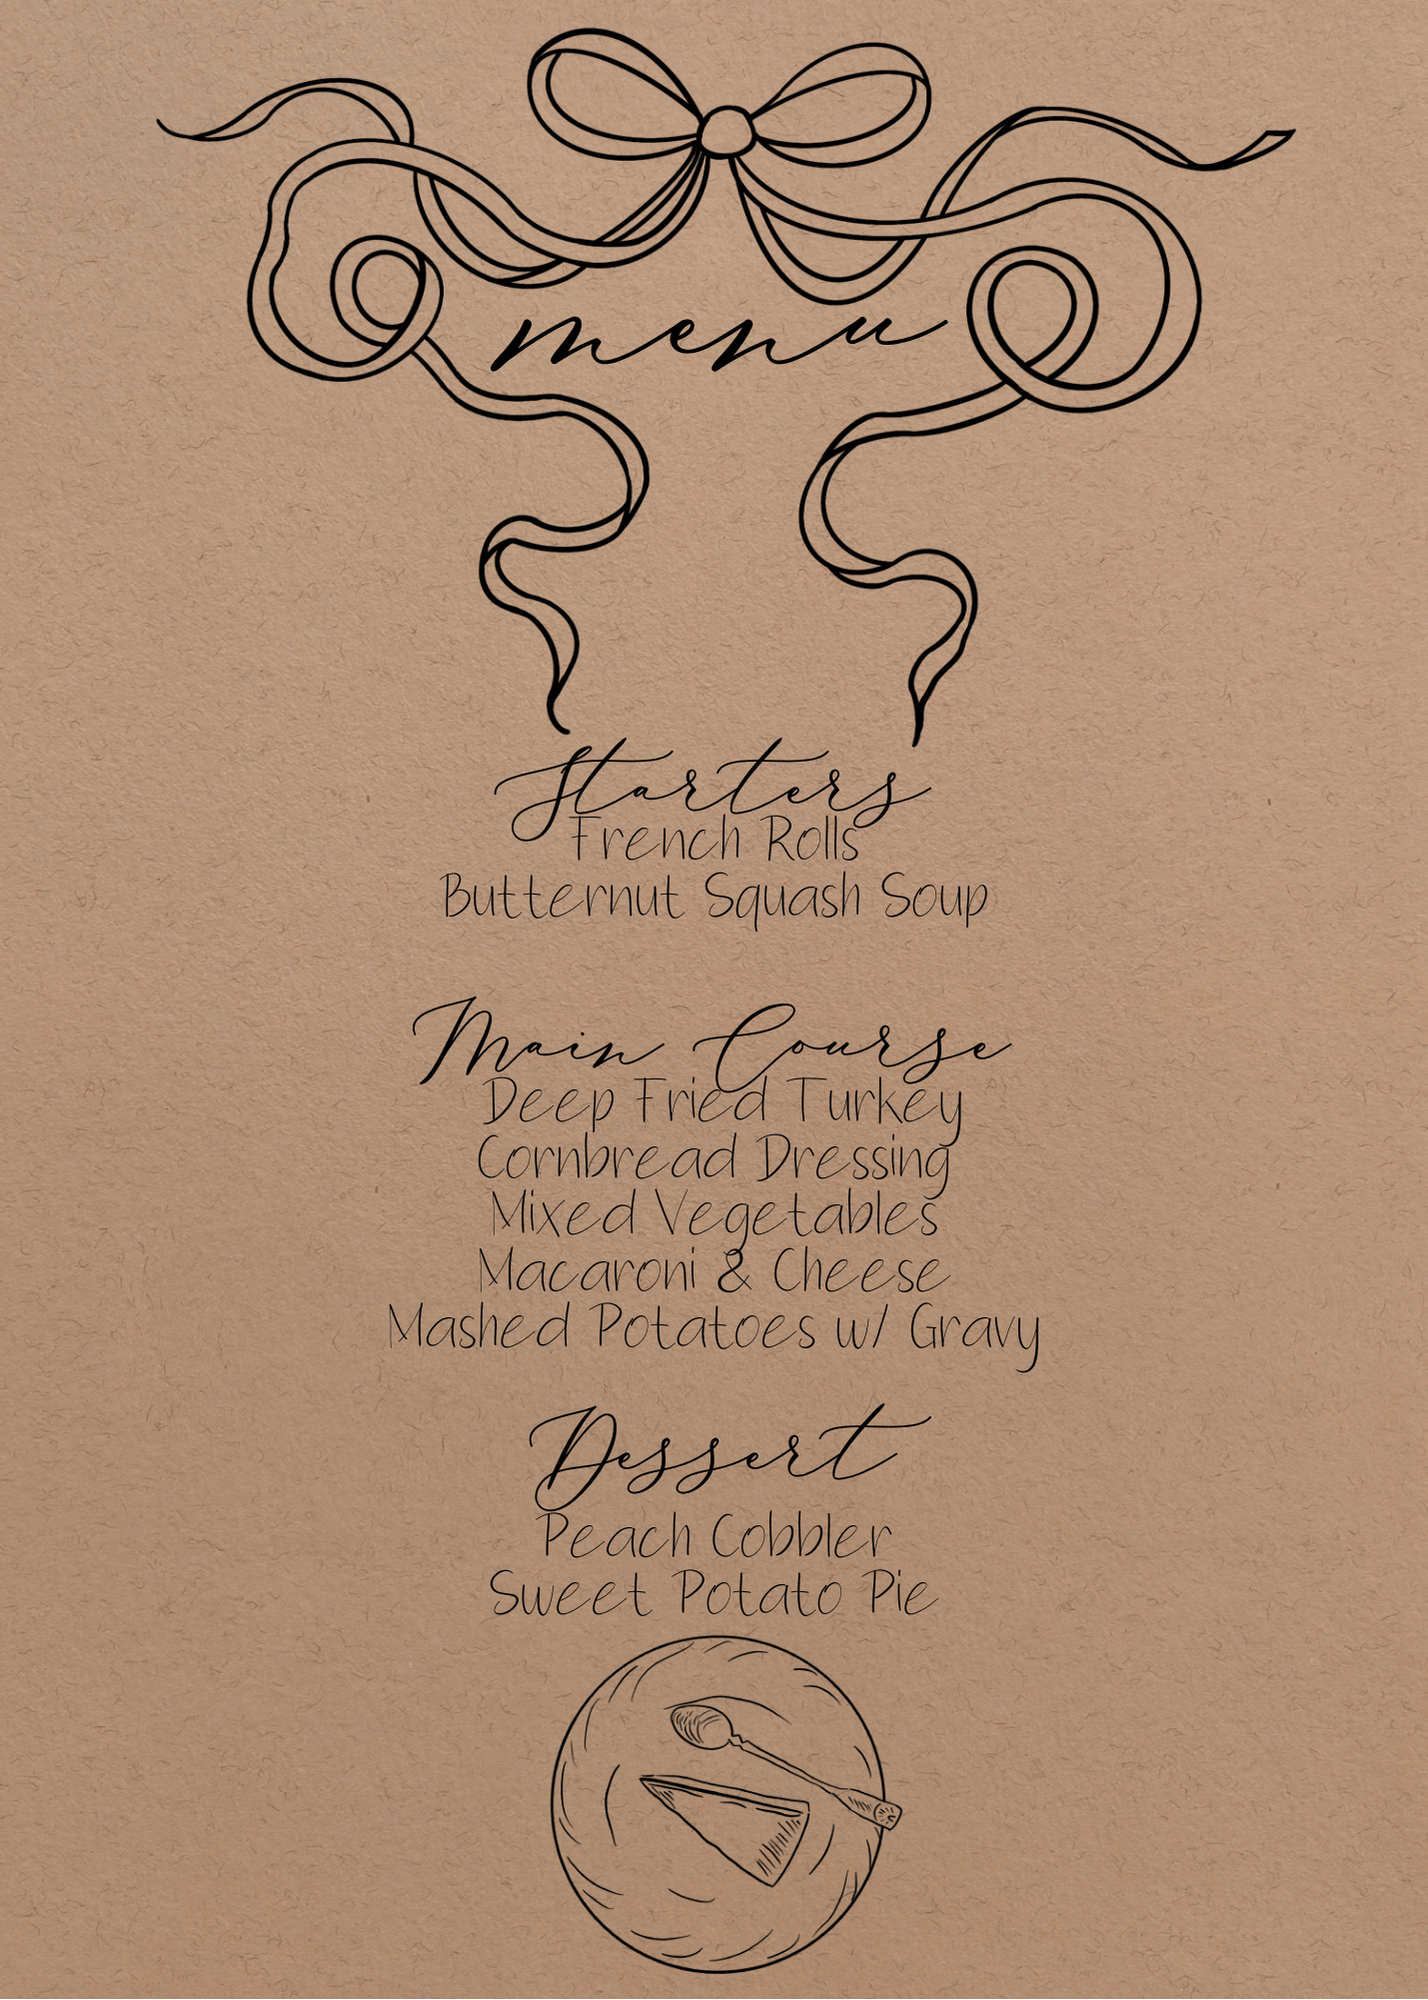 menu
Starters
French Rolls
Butternut Squash Soup
Main Course
Deep Fried Turkey
Cornbread Dressing
Mixed Vegetables
Macaroni & Cheese
Mashed Potatoes w/ Gravy
Dessert
Peach Cobbler
Sweet Potato Pie